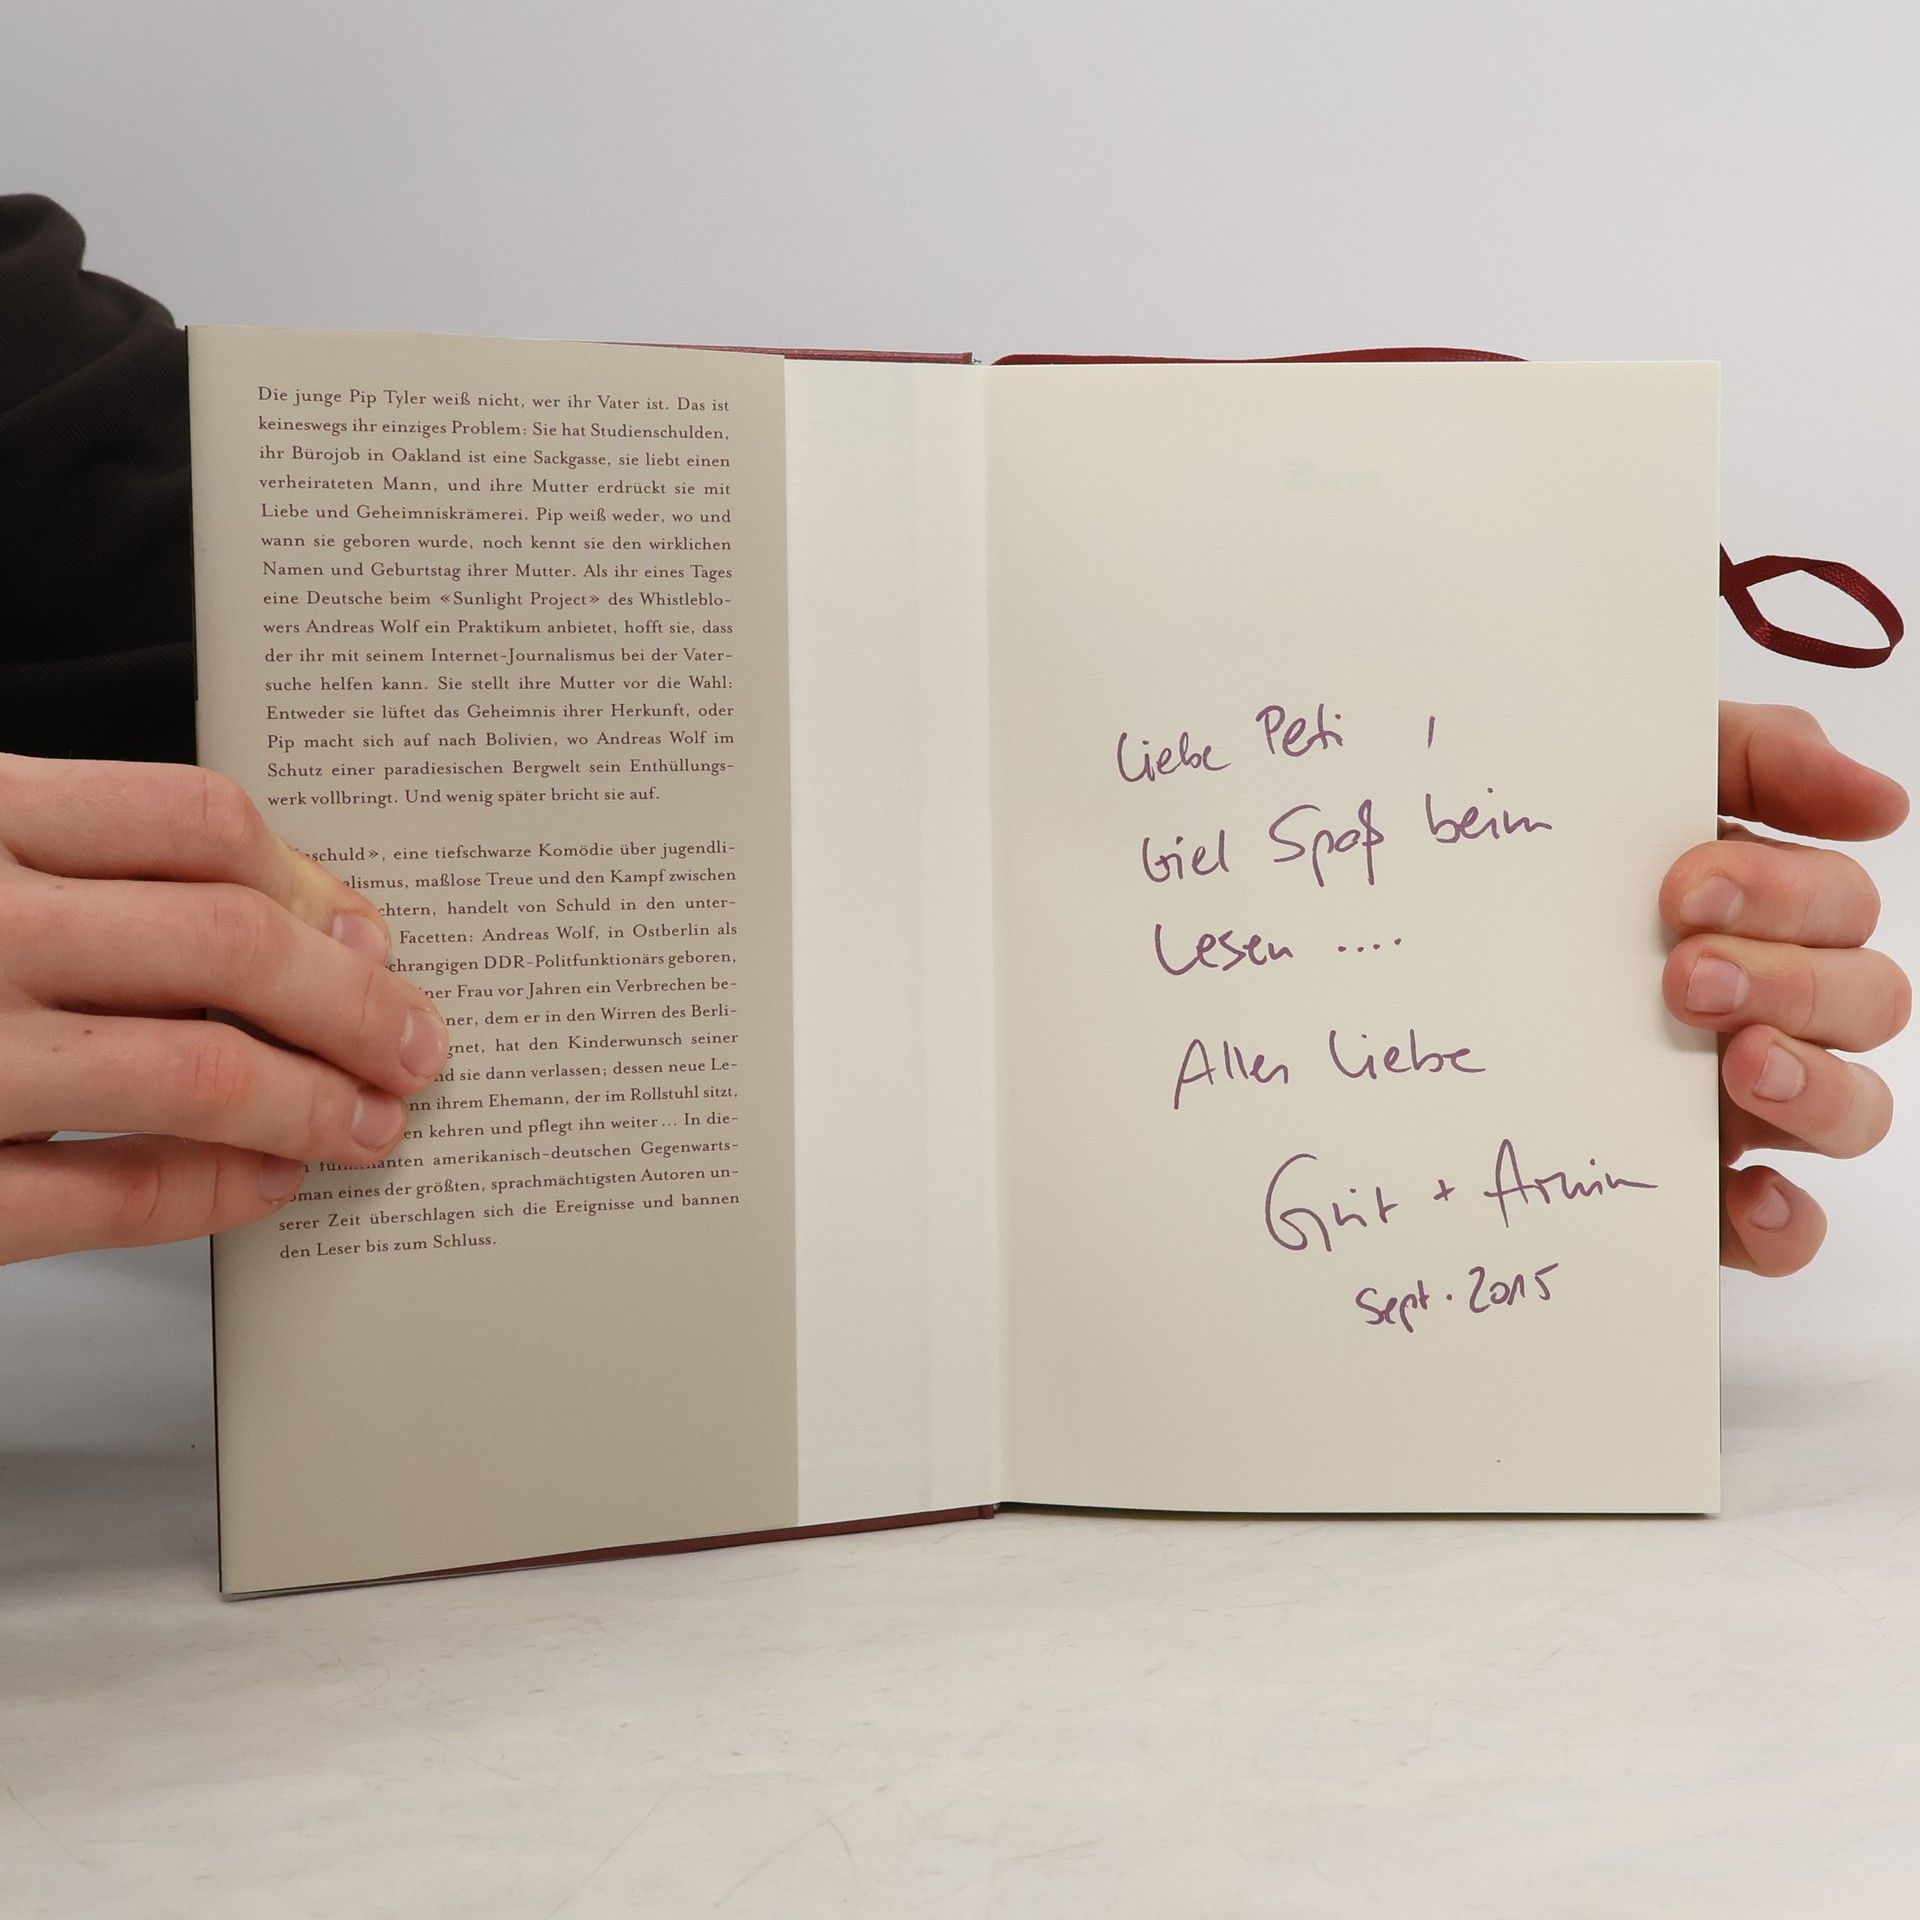 Die junge Pip Tyler weiß nicht, wer ihr Vater ist. Das ist
keineswegs ihr einziges Problem: Sie hat Studienschulden,
ihr Bürojob in Oakland ist eine Sackgasse, sie liebt einen
verheirateten Mann, und ihre Mutter erdrückt sie mit
Liebe und Geheimniskrämerei. Pip weiß weder, wo und
wann sie geboren wurde, noch kennt sie den wirklichen
Namen und Geburtstag ihrer Mutter. Als ihr eines Tages
eine Deutsche beim «Sunlight Project» des Whistleblo-
wers Andreas Wolf ein Praktikum anbietet, hofft sie, dass
der ihr mit seinem Internet-Journalismus bei der Vater-
suche helfen kann. Sie stellt ihre Mutter vor die Wahl:
Entweder sie lüftet das Geheimnis ihrer Herkunft, oder
Pip macht sich auf nach Bolivien, wo Andreas Wolf im
Schutz einer paradiesischen Bergwelt sein Enthüllungs-
werk vollbringt. Und wenig später bricht sie auf.
schuld», eine tiefschwarze Komödie über jugendli-
alismus, maßlose Treue und den Kampf zwischen
chtern, handelt von Schuld in den unter-
Facetten: Andreas Wolf, in Ostberlin als
chrangigen DDR-Politfunktionärs geboren,
ner Frau vor Jahren ein Verbrechen be-
ner, dem er in den Wirren des Berli-
gnet, hat den Kinderwunsch seiner
nd sie dann verlassen; dessen neue Le-
nn ihrem Ehemann, der im Rollstuhl sitzt,
en kehren und pflegt ihn weiter... In die-
anten amerikanisch-deutschen Gegenwarts-
oman eines der größten, sprachmächtigsten Autoren un-
serer Zeit überschlagen sich die Ereignisse und bannen
den Leser bis zum Schluss.
Liebe Peti ,
Viel Spaß beim
Lesen ....
Alles Liebe
+ Armin
Sept. 2015